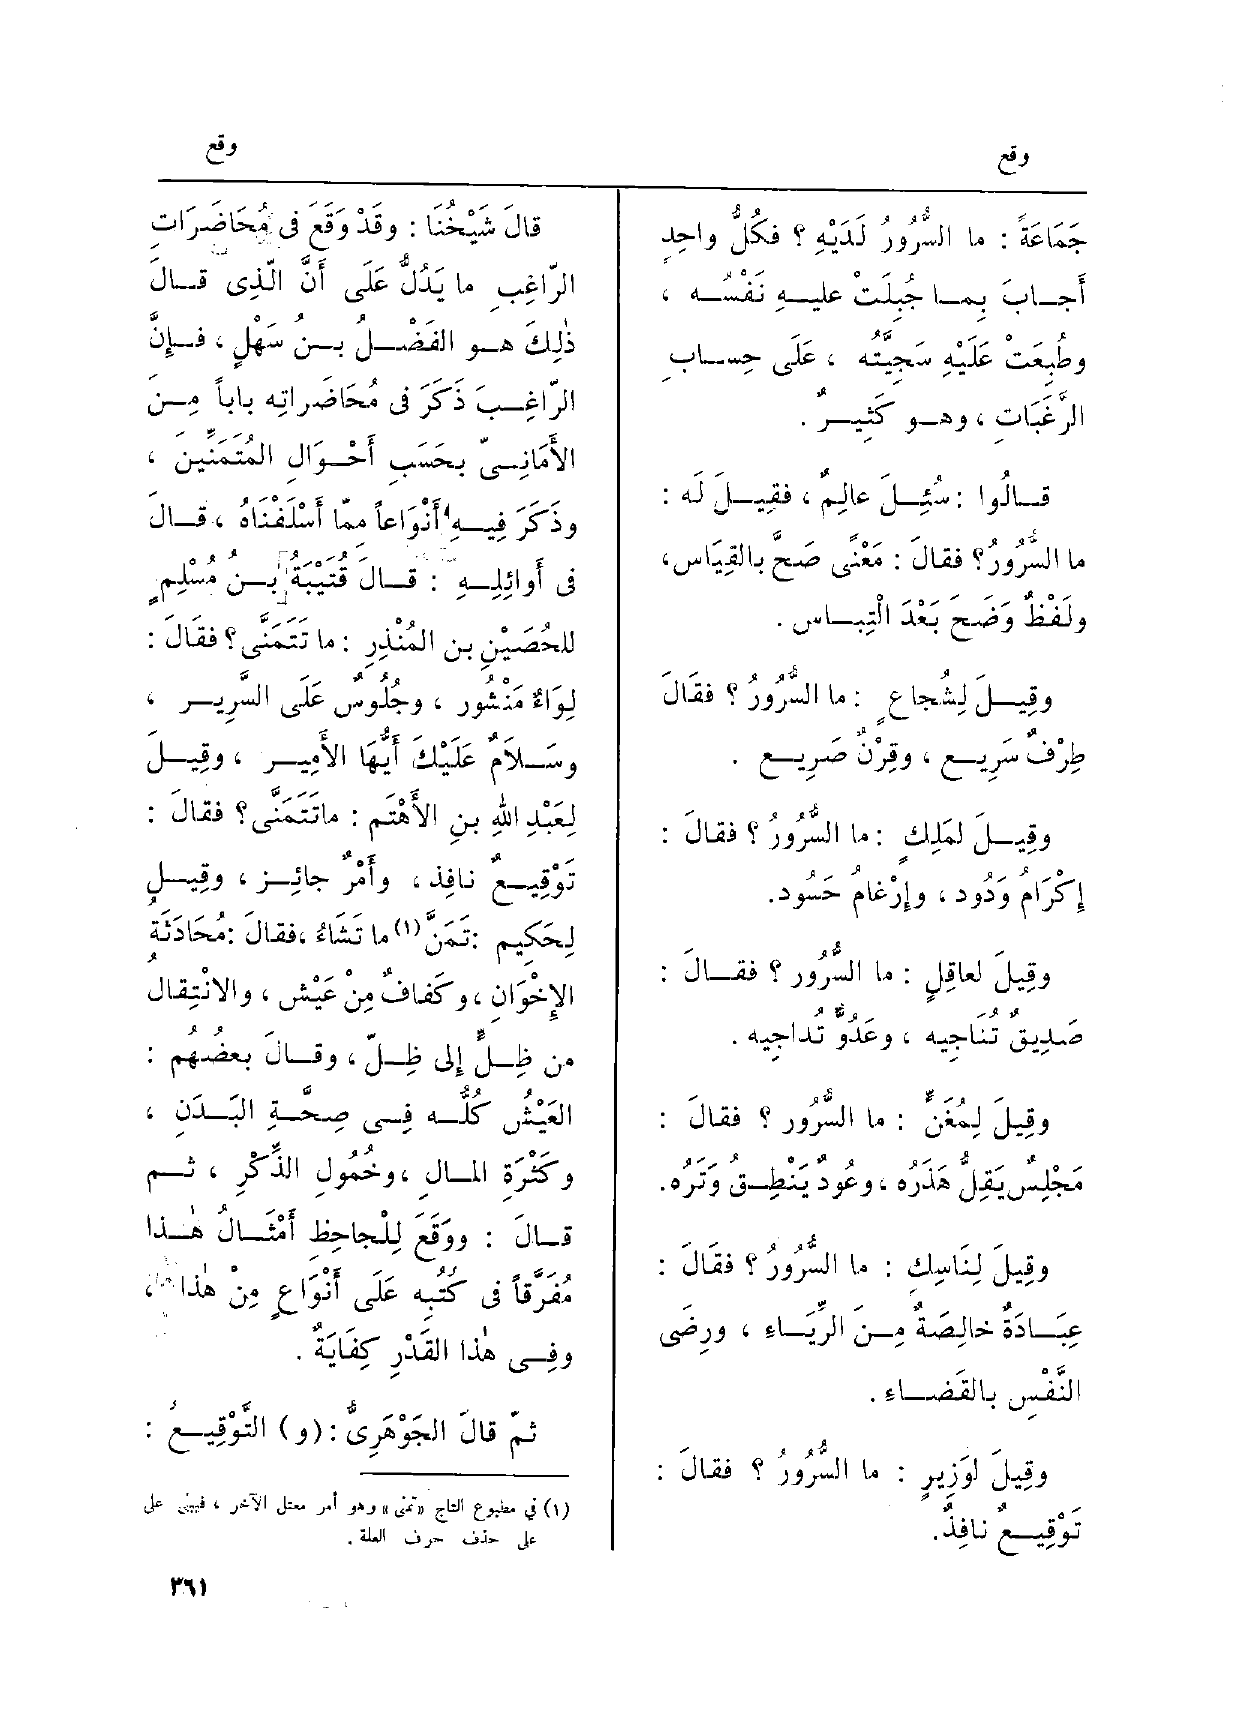 وقع
وقع
جَمَاعَةً : ما السُّرُورُ لَدَيْهِ ؟ فكُلُّ واحِدٍ
أَجــابَ بِمــا جُبِلَتْ عليــهِ نَفْسُــه ،
وطُبِعَتْ عَلَيْهِ سَجِيَّتُه ، عَلَى حِســابِ
الرَّغَبَاتِ ، وهــو كَثِيــرٌ .
قــالُوا : سُئِــلَ عالِمٌ ، فقِيــلَ لَه :
ما السُّرُورُ؟ فقالَ : مَعْنًى صَحَّ بالقِيَاسِ،
ولَفْظٌ وَضَحَ بَعْدَ الْتِبــاسٍ .
وقِيــلَ لِشُجاعٍ : ما السُّرُورُ ؟ فقَالَ
طِرْفٌ سَرِيــع ، وقِرْنٌ صَرِيــع .
وقِيــلَ لمَلِكٍ : ما السُّرُورُ ؟ فقالَ :
إكْرَامُ وَدُود ، وإرْغامُ حَسُود.
وقِيلَ لعاقِلٍ : ما السُّرُور ؟ فقــالَ :
صَدِيقٌ تُنَاجِيه ، وعَدُوٌّ تُداجِيه .
وقِيلَ لِمُغَنٍّ : ما السُّرُور ؟ فقالَ :
مَجْلِسٌ يَقِلُّ هَذَرُه ، وعُودٌ يَنْطِــقُ وَتَرُه.
وقِيلَ لِنَاسِك : ما السُّرُورُ ؟ فقَالَ :
عِبَــادَةٌ خالِصَةٌ مِــنَ الرِّيَــاء ، ورِضَى
النَّفْسِ بالقَضَــاء .
وقِيلَ لوَزِيرٍ : ما السُّرُورُ ؟ فقالَ :
تَوْقِيــعٌ نافِذٌ.
قالَ شَيْخُنَا : وقَدْ وَقَعَ فى مُحَاضَرَاتِ
الرّاغِبِ ما يَدُلُّ عَلَى أَنَّ الَّذِى قــالَ
ذٰلِكَ هــو الفَضْــلُ بــنُ سَهْلٍ ، فــإِنَّ
الرّاغِــبَ ذَكَرَ فى مُحَاضَراتِه باباً مِــنَ
الأَمَانِــىّ بحَسَبِ أَحْــوَالِ المُتَمَنِّينَ ،
وذَكَرَ فِيــهِ أَنْوَاعاً ممّا أَسْلَفْنَاهُ ، قــالَ
فى أَوائِلِــهِ : قــالَ قُتَيْبَةُ بــنُ مُسْلِمٍ
للحُصَيْنِ بن المُنْذِرِ : ما تَتَمَنَّى؟ فقَالَ :
لِوَاءٌ مَنْشُور ، وجُلُوسٌ عَلَى السَّرِيــر ،
وسَــلاَمٌ عَلَيْكَ أَيُّهَا الأَمِيــر ، وقِيــلَ
لِعَبْدِ اللهِ بنِ الأَهْتَمِ : ماتَتَمَنَّى؟ فقالَ :
تَوْقِيــعٌ نافِذ ، وأَمْرٌ جائِــز ، وقِيــل
لِحَكِيمٍ :تَمَنَّ(١) ما تَشَاءُ ،فقالَ :مُحَادَثَةُ
الإِخْوَانِ ، وكَفافٌ مِنْ عَيْش ، والانْتِقالُ
من ظِــلٍّ إلى ظِــلّ ، وقــالَ بعضُهُم :
العَيْشُ كُلُّــه فِــى صِحَّــةِ البَــدَنِ ،
وكَثْرَةِ المــالِ ،وخُمُولِ الذِّكْرِ ، ثــم
قــالَ : ووَقَعَ لِلْجاحِظِ أَمْثَــالُ هٰــذا
مُفَرَّقاً فى كُتُبِه عَلَى أَنْوَاعٍ مِنْ هٰذا ،
وفِــى هٰذا القَدْرِ كِفَايَةٌ .
ثمّ قالَ الجَوْهَرِىُّ : (و) التَّوْقِيــعُ :
(١) في مطبوع التاج «تمنى» وهو أمر معتل الآخر ، فيبنى على
على حذف حرف العلة .
٣٦١